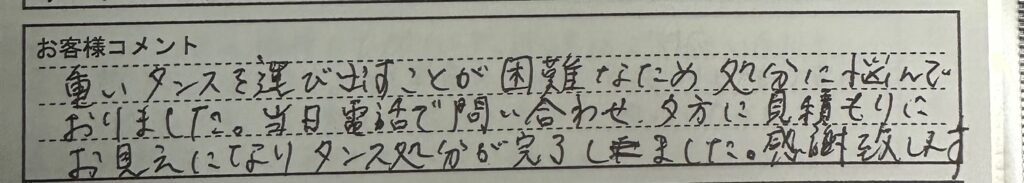 お客様コメント
重いタンスを運び出すことが困難なため処分に悩んで
おりました。当日電話で問い合わせ、夕方に見積もりに
お見えになりタンス処分が完了しました。感謝致します